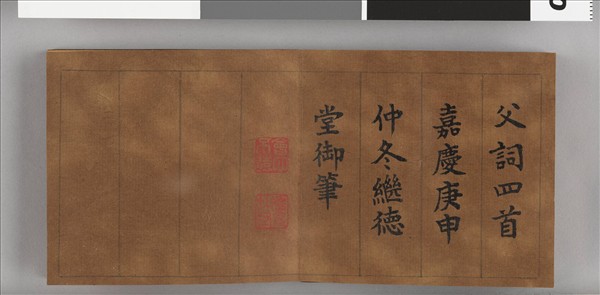 父詞四首
嘉慶庚申
仲冬繼德
堂御筆